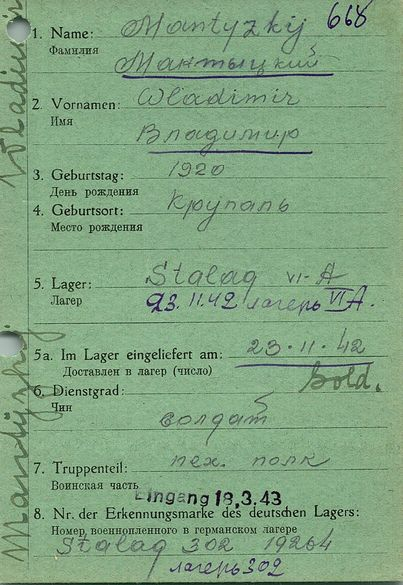 668
1. Name: Mantyzkij
Фамилия Мантыцкий
2. Vornamen: Wladimir
Имя
Владимир
3. Geburtstag: 1920
День рождения
4. Geburtsort: Крупаль
Место рождения
5. Lager: Stalag VI-A
Лагерь 23.11.42 лагерь VI A.
5a. Im Lager eingeliefert am: 23.11.42
Доставлен в лагерь (число)
6. Dienstgrad: Sold.
Чин
солдат
7. Truppenteil: пех. полк
Воинская часть
Eingang 18.3.43
8. Nr. der Erkennungsmarke des deutschen Lagers:
Номер военнопленного в германском лагере
Stalag 302 19264
лагерь 302
Mantyzkij
Wladimir